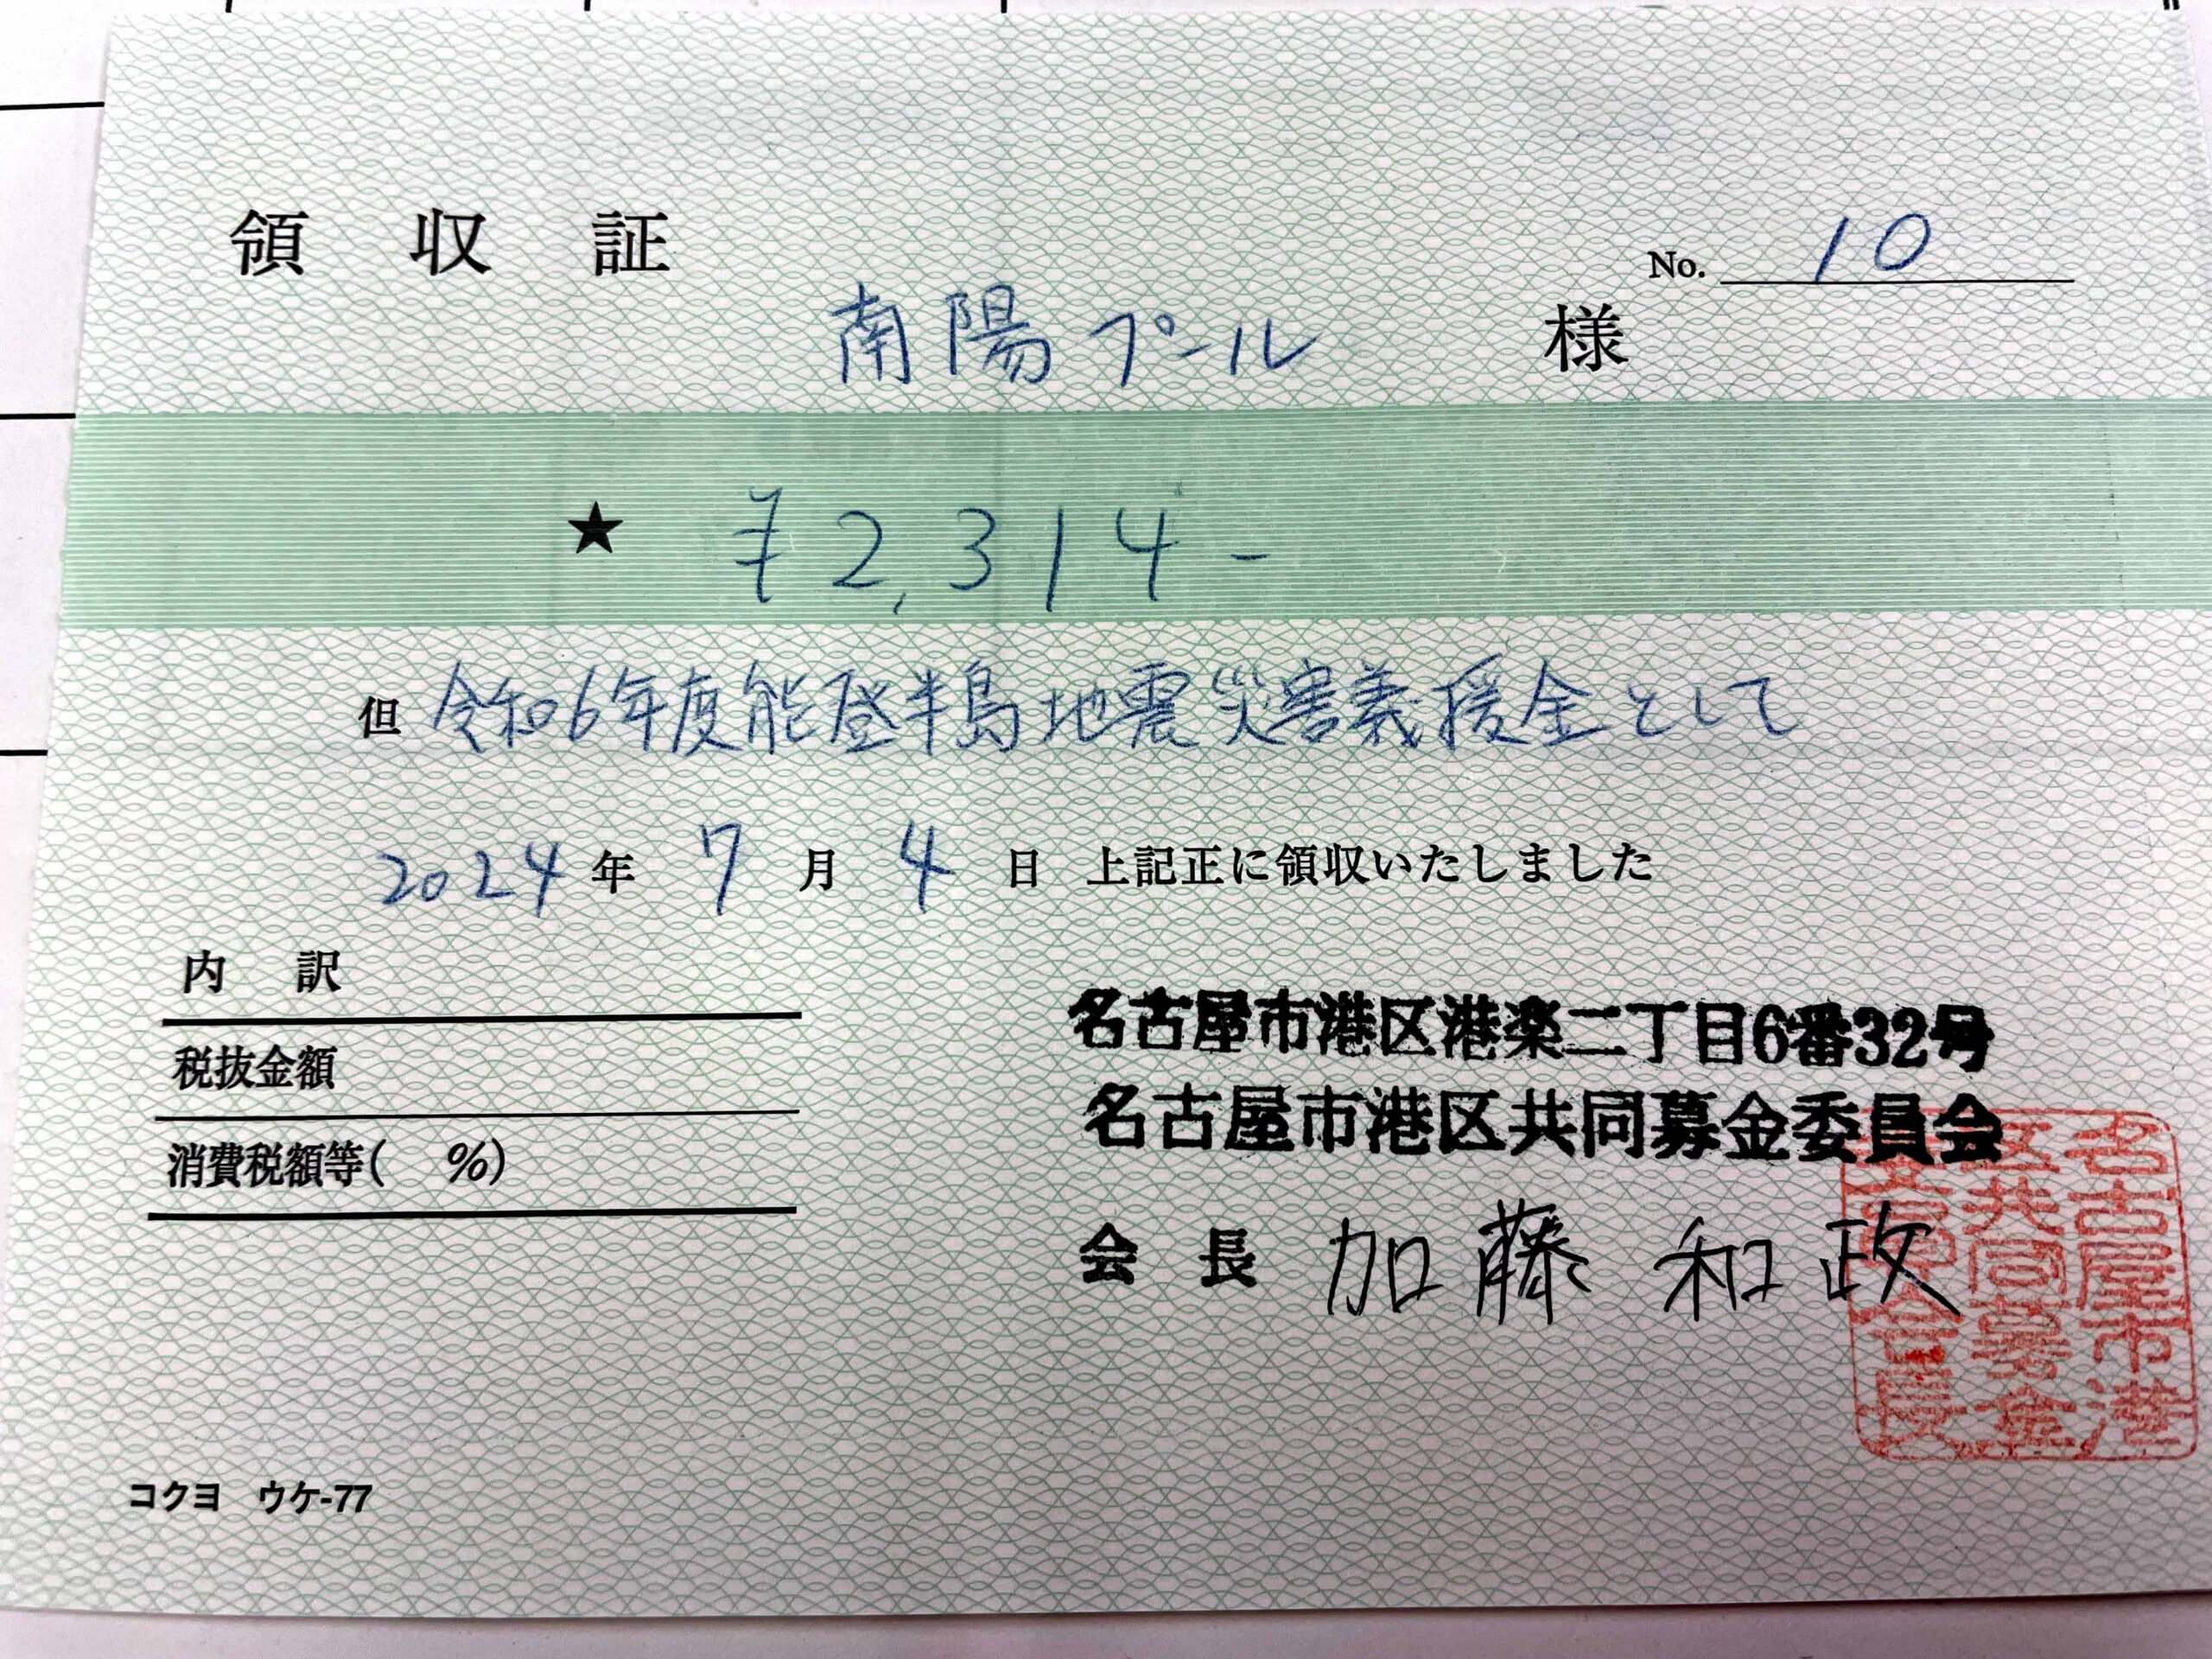 領収証
No. 10
南陽プール 様
★ ¥2,314-
但 令和6年度能登半島地震災害義援金として
2024年7月4日 上記正に領収いたしました
内訳
税抜金額
消費税額等( %)
名古屋市港区港楽二丁目6番32号
名古屋市港区共同募金委員会
会長 加藤和政
名古屋市港区共同募金委員会長
コクヨ ウケ-77